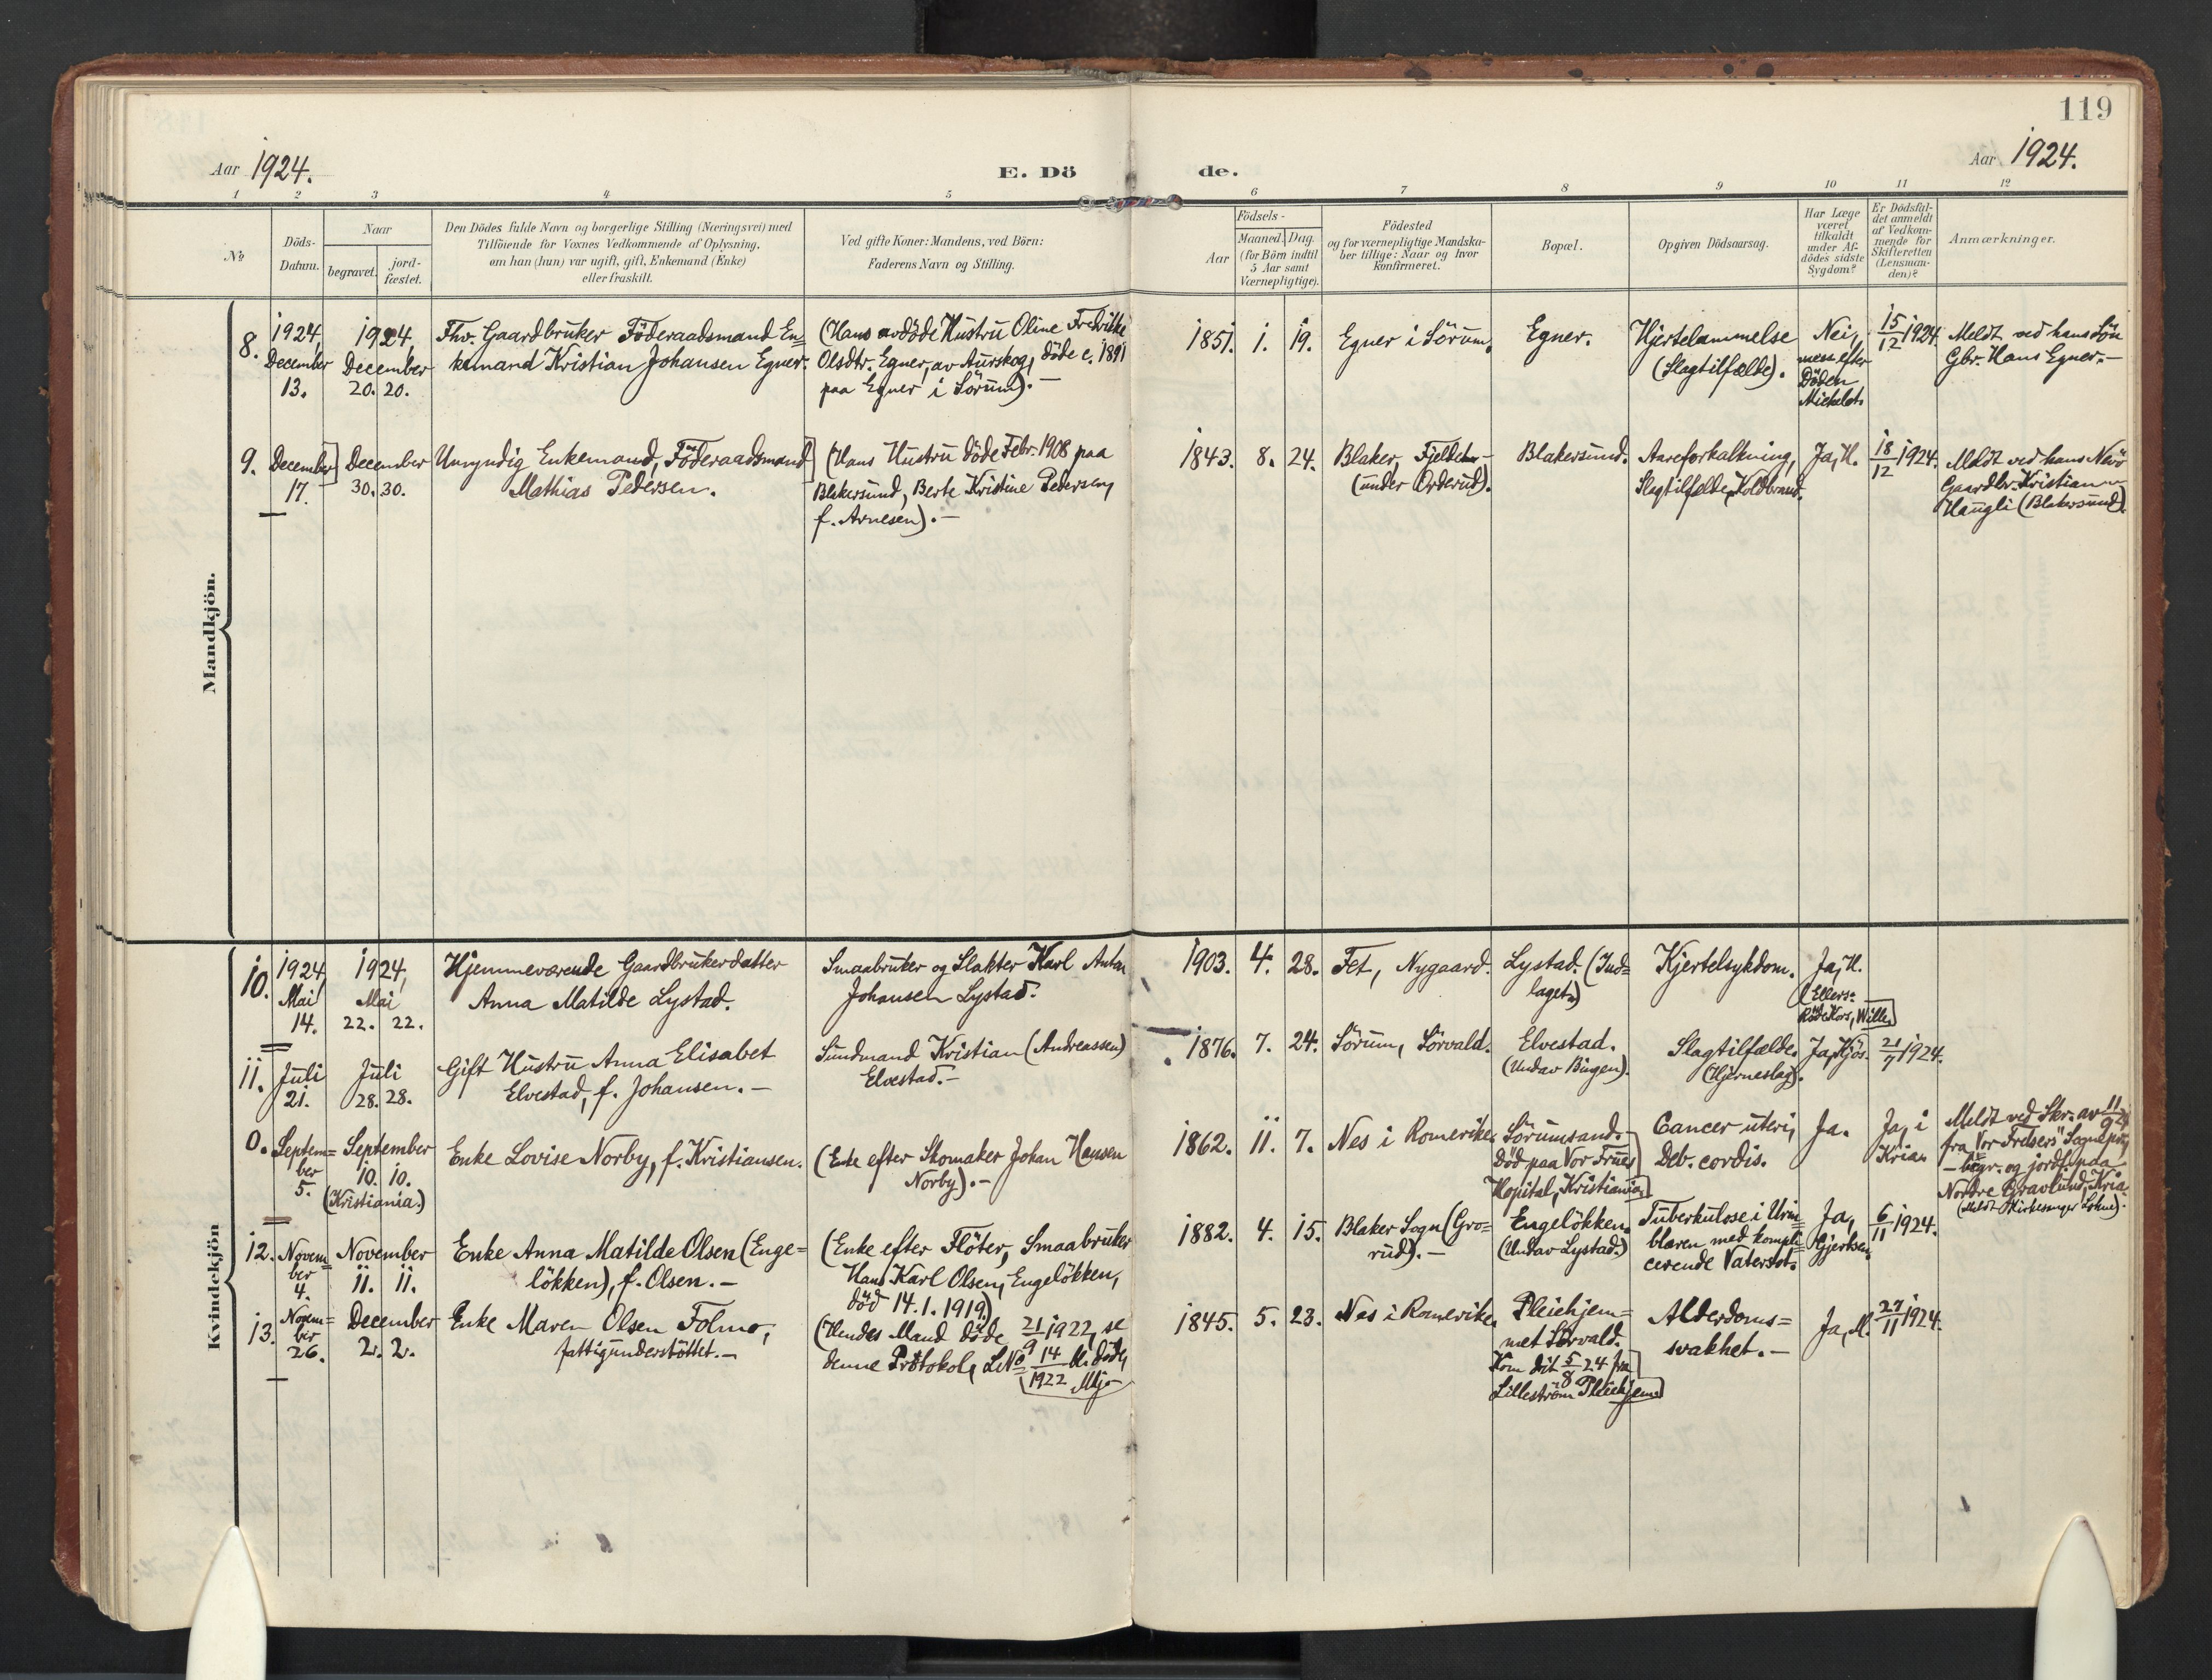 119
Aar 1924.
E. Dö
de.
Aar 1924.
1 2 3 4 5 6 7 8 9 10 11 12
№
Döds-
Datum.
Naar
begravet.
jord-
fæstet.
Den Dödes fulde Navn og borgerlige Stilling (Næringsvei) med
Tilföiende for Voxnes Vedkommende af Oplysning,
om han (hun) var ugift, gift, Enkemand (Enke)
eller fraskilt.
Ved gifte Koner: Mandens, ved Börn:
Faderens Navn og Stilling.
Födsels-
Aar
Maaned.
Dag.
(for Börn indtil
5 Aar samt
Værnepligtige).
Födested
og for værnepligtige Mandska-
ber tillige: Naar og hvor
konfirmeret.
Bopæl.
Opgiven Dödsaarsag.
Har Læge
været
tilkaldt
under Af-
dödes sidste
Sygdom?
Er Dödsfal-
det anmeldt
af Vedkom-
mende for
Skifteretten
(Lensman-
den)?
Anmærkninger.
Mandkjön.
8.
1924,
December
13.
1924,
December
20. 20.
Fhv. Gaardbruker Föderaadsmand En=
kemand Kristian Johansen Egner.
(Hans avdöde Hustru Oline Fredrikke
Olsdtr. Egner, av Aurskog, döde c. 1891
paa Egner i Sörum).—
1851. 1. 19.
Egner i Sörum.
Egner.
Hjertelammelse
(Slagtilfælde).
Nei,
men efter
Döden
15/12 1924.
Meldt ved hans Sön
Gbr. Hans Egner.—
9.
December
17.
December
30. 30.
Umyndig Enkemand, Föderaadsmand
Mathias Pedersen.
(Hans Hustru döde Febr. 1908 paa
Blakersund, Berte Kristine Pedersen,
f. Arnesen).—
1843. 8. 24.
Blaker,
(under Orderud).
Blakersund.
Aareforkalkning,
Slagtilfælde, Koldbrand.
Ja, H.
18/12 1924.
Meldt ved hans Nevö
Gaardbr. Kristian
Haugli (Blakersund).
Kvindekjön
10.
1924,
Mai
14.
1924,
Mai
22. 22.
Hjemmeværende Gaardbrukerdatter
Anna Matilde Lystad.
Smaabruker og Slakter Karl Anton
Johansen Lystad.
1903. 4. 28.
Fet, Nygaard.
Lystad. (Ind=
laget)
Kjertelsykdom.
Ja, H.
(Ellers:
Röde Kors, Wille)
11.
Juli
21.
Juli
28. 28.
Gift Hustru Anna Elisabet
Elvestad, f. Johansen.—
Sundmand Kristian (Andreassen)
Elvestad.—
1876. 7. 24.
Sörum, Sörvald.
Elvestad.
(Undav Bingen).
Slagtilfælde.
(Hjerneslag).
Ja, Kjös.
21/7 1924.
0.
Septem=
ber
5.
September
10. 10.
(Kristiania.)
Enke Lovise Norby, f. Kristiansen.
(Enke efter Skomaker Johan Hansen
Norby).—
1862. 11. 7.
Nes i Romerike.
Sörumsand.
Död paa Vor Frues
Hospital, Kristiania
Cancer uteri,
Deb. cordis.
Ja.
Ja, i
Kria.
Meldt ved Skr. av 11/9 24
fra "Vor Frelsers" Sognepr.,
— begr. og jordf. paa
Nordre Gravlund, Kria.
(Meldt Kirkesanger Lohne).
12.
Novem=
ber
4.
November
11. 11.
Enke Anna Matilde Olsen (Enge=
lökken), f. Olsen.—
(Enke efter Flöter, Smaabruker
Hans Karl Olsen, Engelökken,
död 14.1.1919)
1882. 4. 15.
Blaker Sogn (Gro=
rud).—
Engelökken.
(Undav Lystad.)
Tuberkulose i Urin=
blæren med kompli=
cerende Vatersot.
Ja,
Gjertsen.
6/11 1924.
13.
Novem=
ber
26.
December
2. 2.
Enke Maren Olsen Folmo,
fattigunderstöttet.—
(Hendes Mand döde 21/9 1922, se
denne Protokol, L.№ 14/1922 M. döde,
1845. 5. 23.
Nes i Romerike.
Pleiehjem=
met Sörvald.
Kom dit 5/8 24 fra
Lilleström Pleiehjem
Alderdoms=
svakhet.—
Ja, M.
27/11 1924.